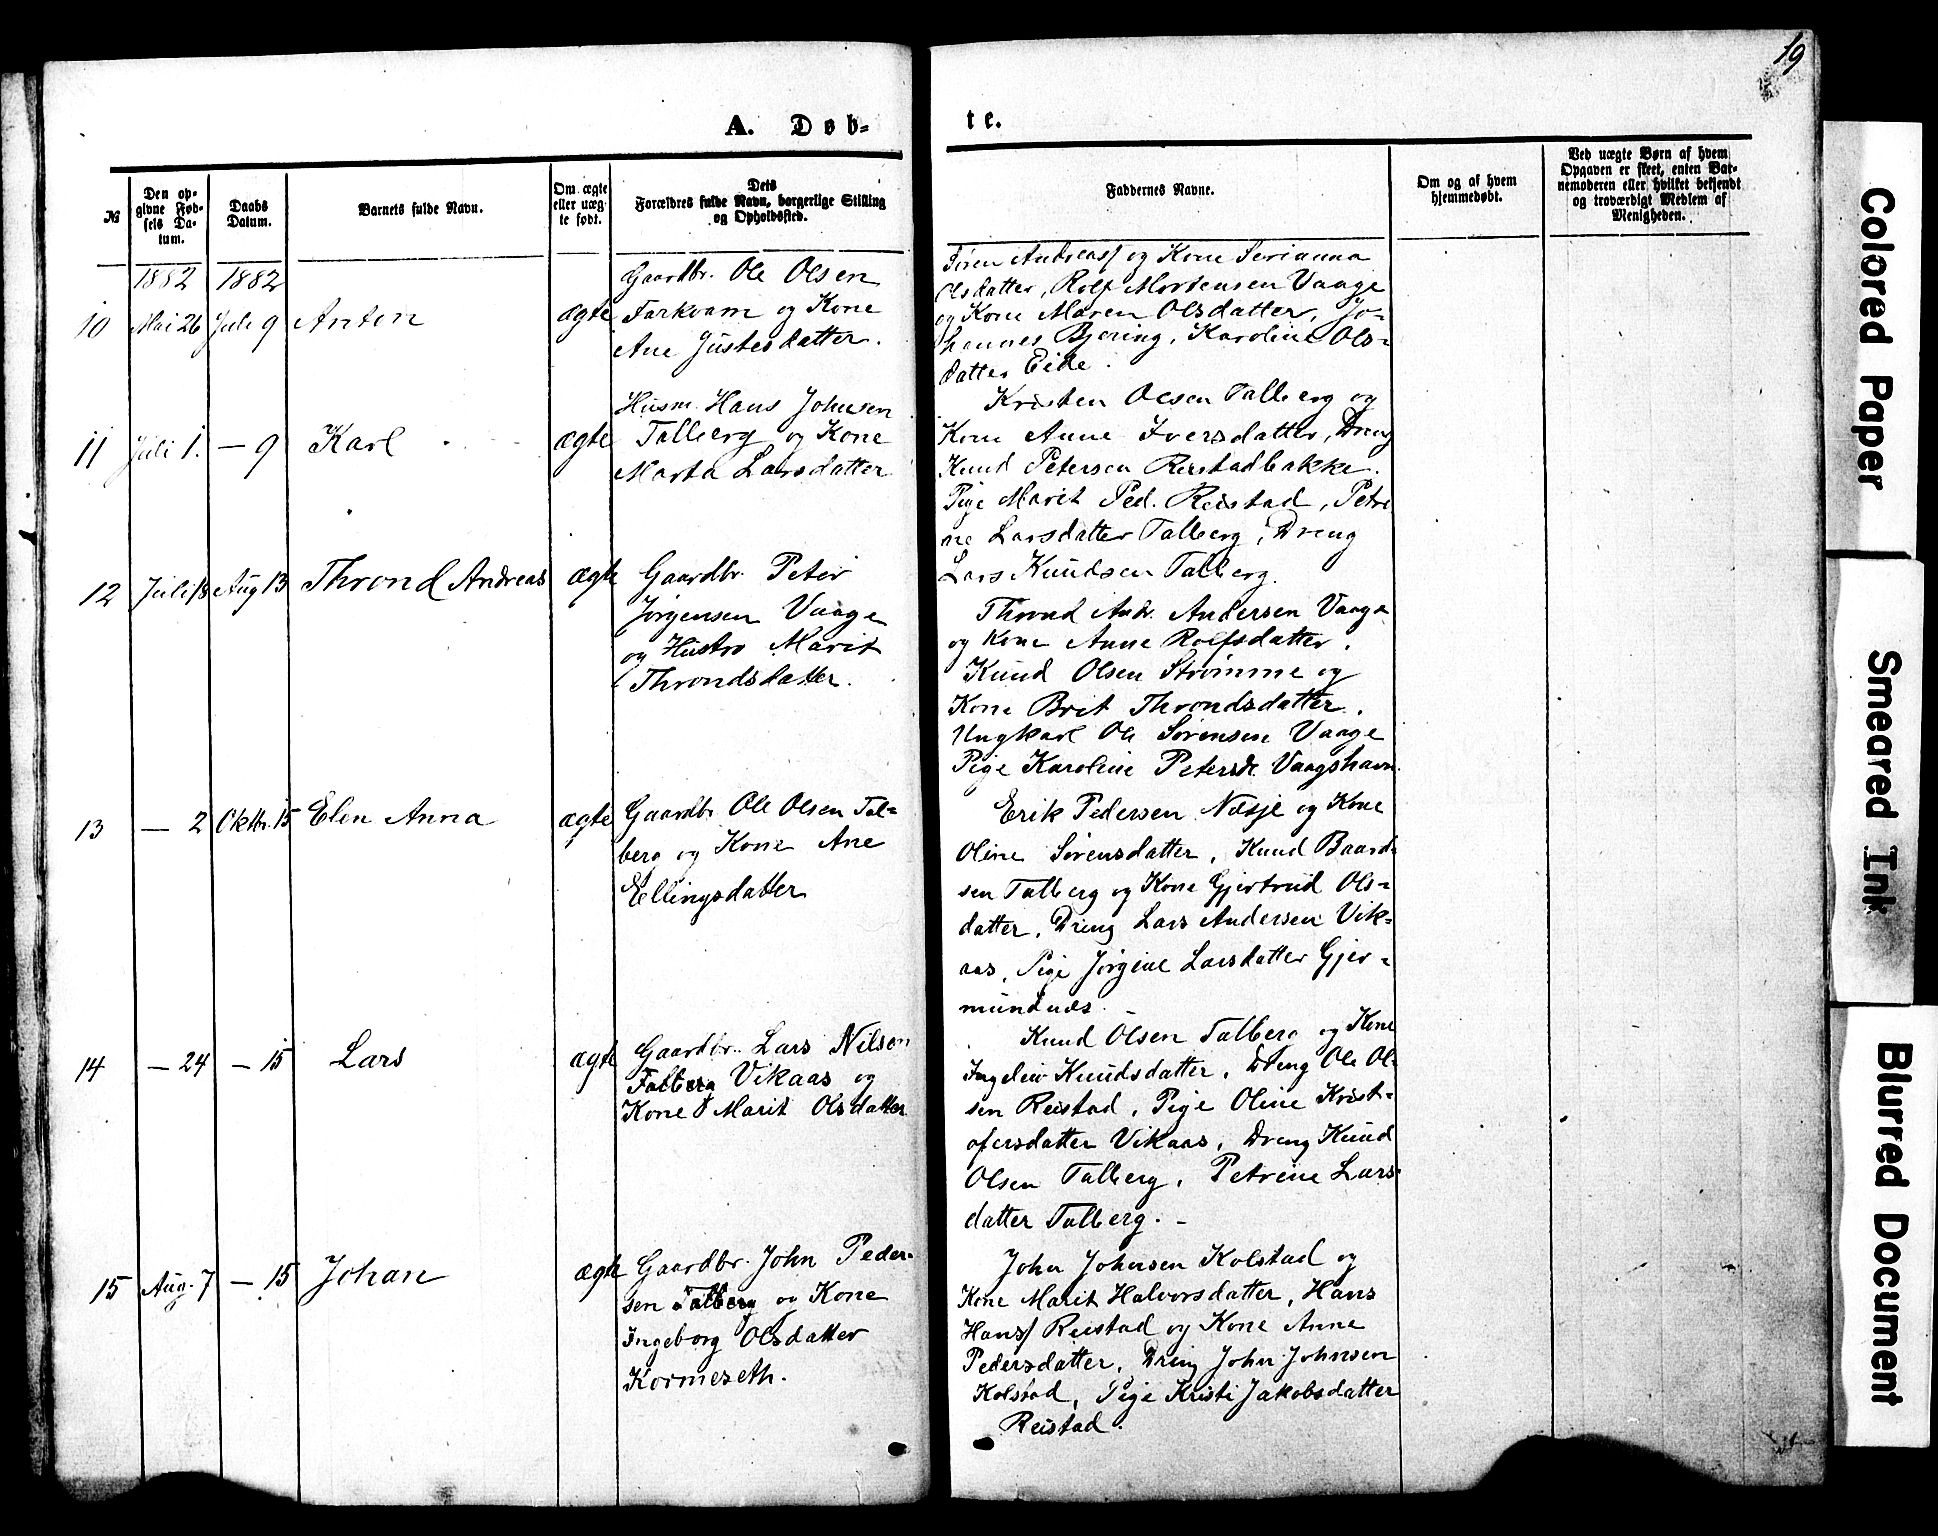 19
A. Døb-
te.
№
Den op-
givne Fød-
sels Da-
tum.
Daabs
Datum.
Barnets fulde Navn.
Om ægte
eller uæg-
te født.
Dets
Forældres fulde Navn, borgerlige Stilling
og Opholdssted.
Faddernes Navne.
Om og af hvem
hjemmedøbt.
Ved uægte Børn af hvem
Opgaven er skeet, enten Bar-
nemoderen eller hvilket bekjendt
og troværdigt Medlem af
Menigheden.
1882
1882
10 Mai 26 Juli 9 Anton ægte
Gaardbr. Ole Olsen
Farkvam og Kone
Ane Justesdatter.
Søren Andreass og Kone Serianna
Olsdatter, Rolf Mortensen Vaage
og Kone Maren Olsdatter, Jo-
hannes Bjering, Karoline Ols-
datter Eide.
11 Juli 1. — 9 Karl ægte
Husm. Hans Johnsen
Talberg og Kone
Marta Larsdatter
Kristen Olsen Talberg og
Kone Anne Iversdatter, Dreng
Knud Petersen Reistadbakke.
Pige Marit Ped. Reistad, Petri
ne Larsdatter Talberg, Dreng
Lars Knudsen Talberg.
12 Juli 18 Aug 13 Thrond Andreas ægte
Gaardbr. Peter
Jørgensen Vaage
og Hustro Marit
Throndsdatter.
Thrond Andr. Andersen Vaage
og Kone Anne Rolfsdatter.
Knud Olsen Strømme og
Kone Brit Throndsdatter.
Ungkarl Ole Sørensen Vaage
Pige Karoline Petersd. Vaagshavn.
13 — 2 Oktbr. 15 Elen Anna ægte
Gaardbr Ole Olsen Tal-
berg og Kone Ane
Ellingsdatter
Erik Pedersen Næsje og Kone
Oline Sørensdatter, Knud Baard-
sen Talberg og Kone Gjertrud Ols-
datter, Dreng Lars Andersen Vik-
aas, Pige Jørgine Larsdatter Gjer-
mundnæs.
14 — 24 — 15 Lars ægte
Gaardbr. Lars Nilsen
Talberg Vikaas og
Kone Marit Olsdatter
Knud Olsen Talberg og Kone
Ingelev Knudsdatter, Dreng Ole Ol-
sen Reistad, Pige Oline Krist-
ofersdatter Vikaas, Dreng Knud
Olsen Talberg, Petrine Lars-
datter Talberg. -
15 Aug. 7 — 15 Johan ægte
Gaardbr. John Peder-
sen Talberg og Kone
Ingeborg Olsdatter
Kormeseth.
John Johnsen Kolstad og
Kone Marit Halvorsdatter, Hans
Hanss Reistad og Kone Anne
Pedersdatter, Dreng John Johnsen
Kolstad, Pige Kristi Jakobsdatter
Reistad.
Colored Paper
Smeared Ink
Blurred Document